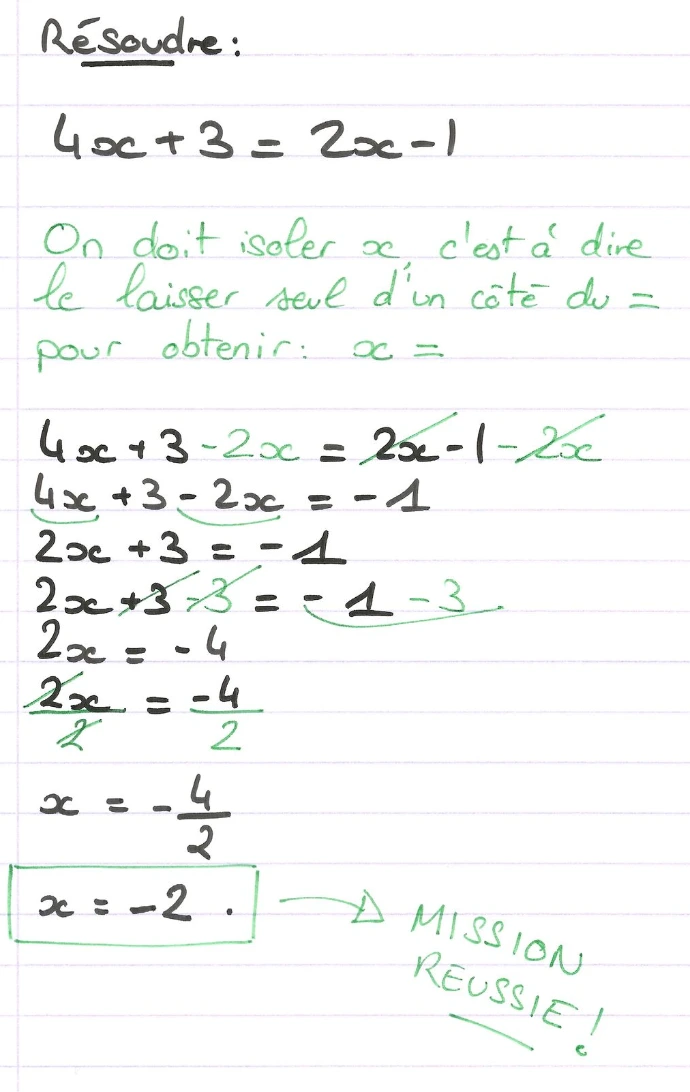 Résoudre :
4x + 3 = 2x - 1
On doit isoler x, c'est à dire
le laisser seul d'un côté du =
pour obtenir : x =
4x + 3 - 2x = 2x - 1 - 2x
4x + 3 - 2x = - 1
2x + 3 = - 1
2x + 3 - 3 = - 1 - 3
2x = - 4
2x/2 = -4/2
x = - 4/2
x = - 2 .
MISSION
RÉUSSIE !